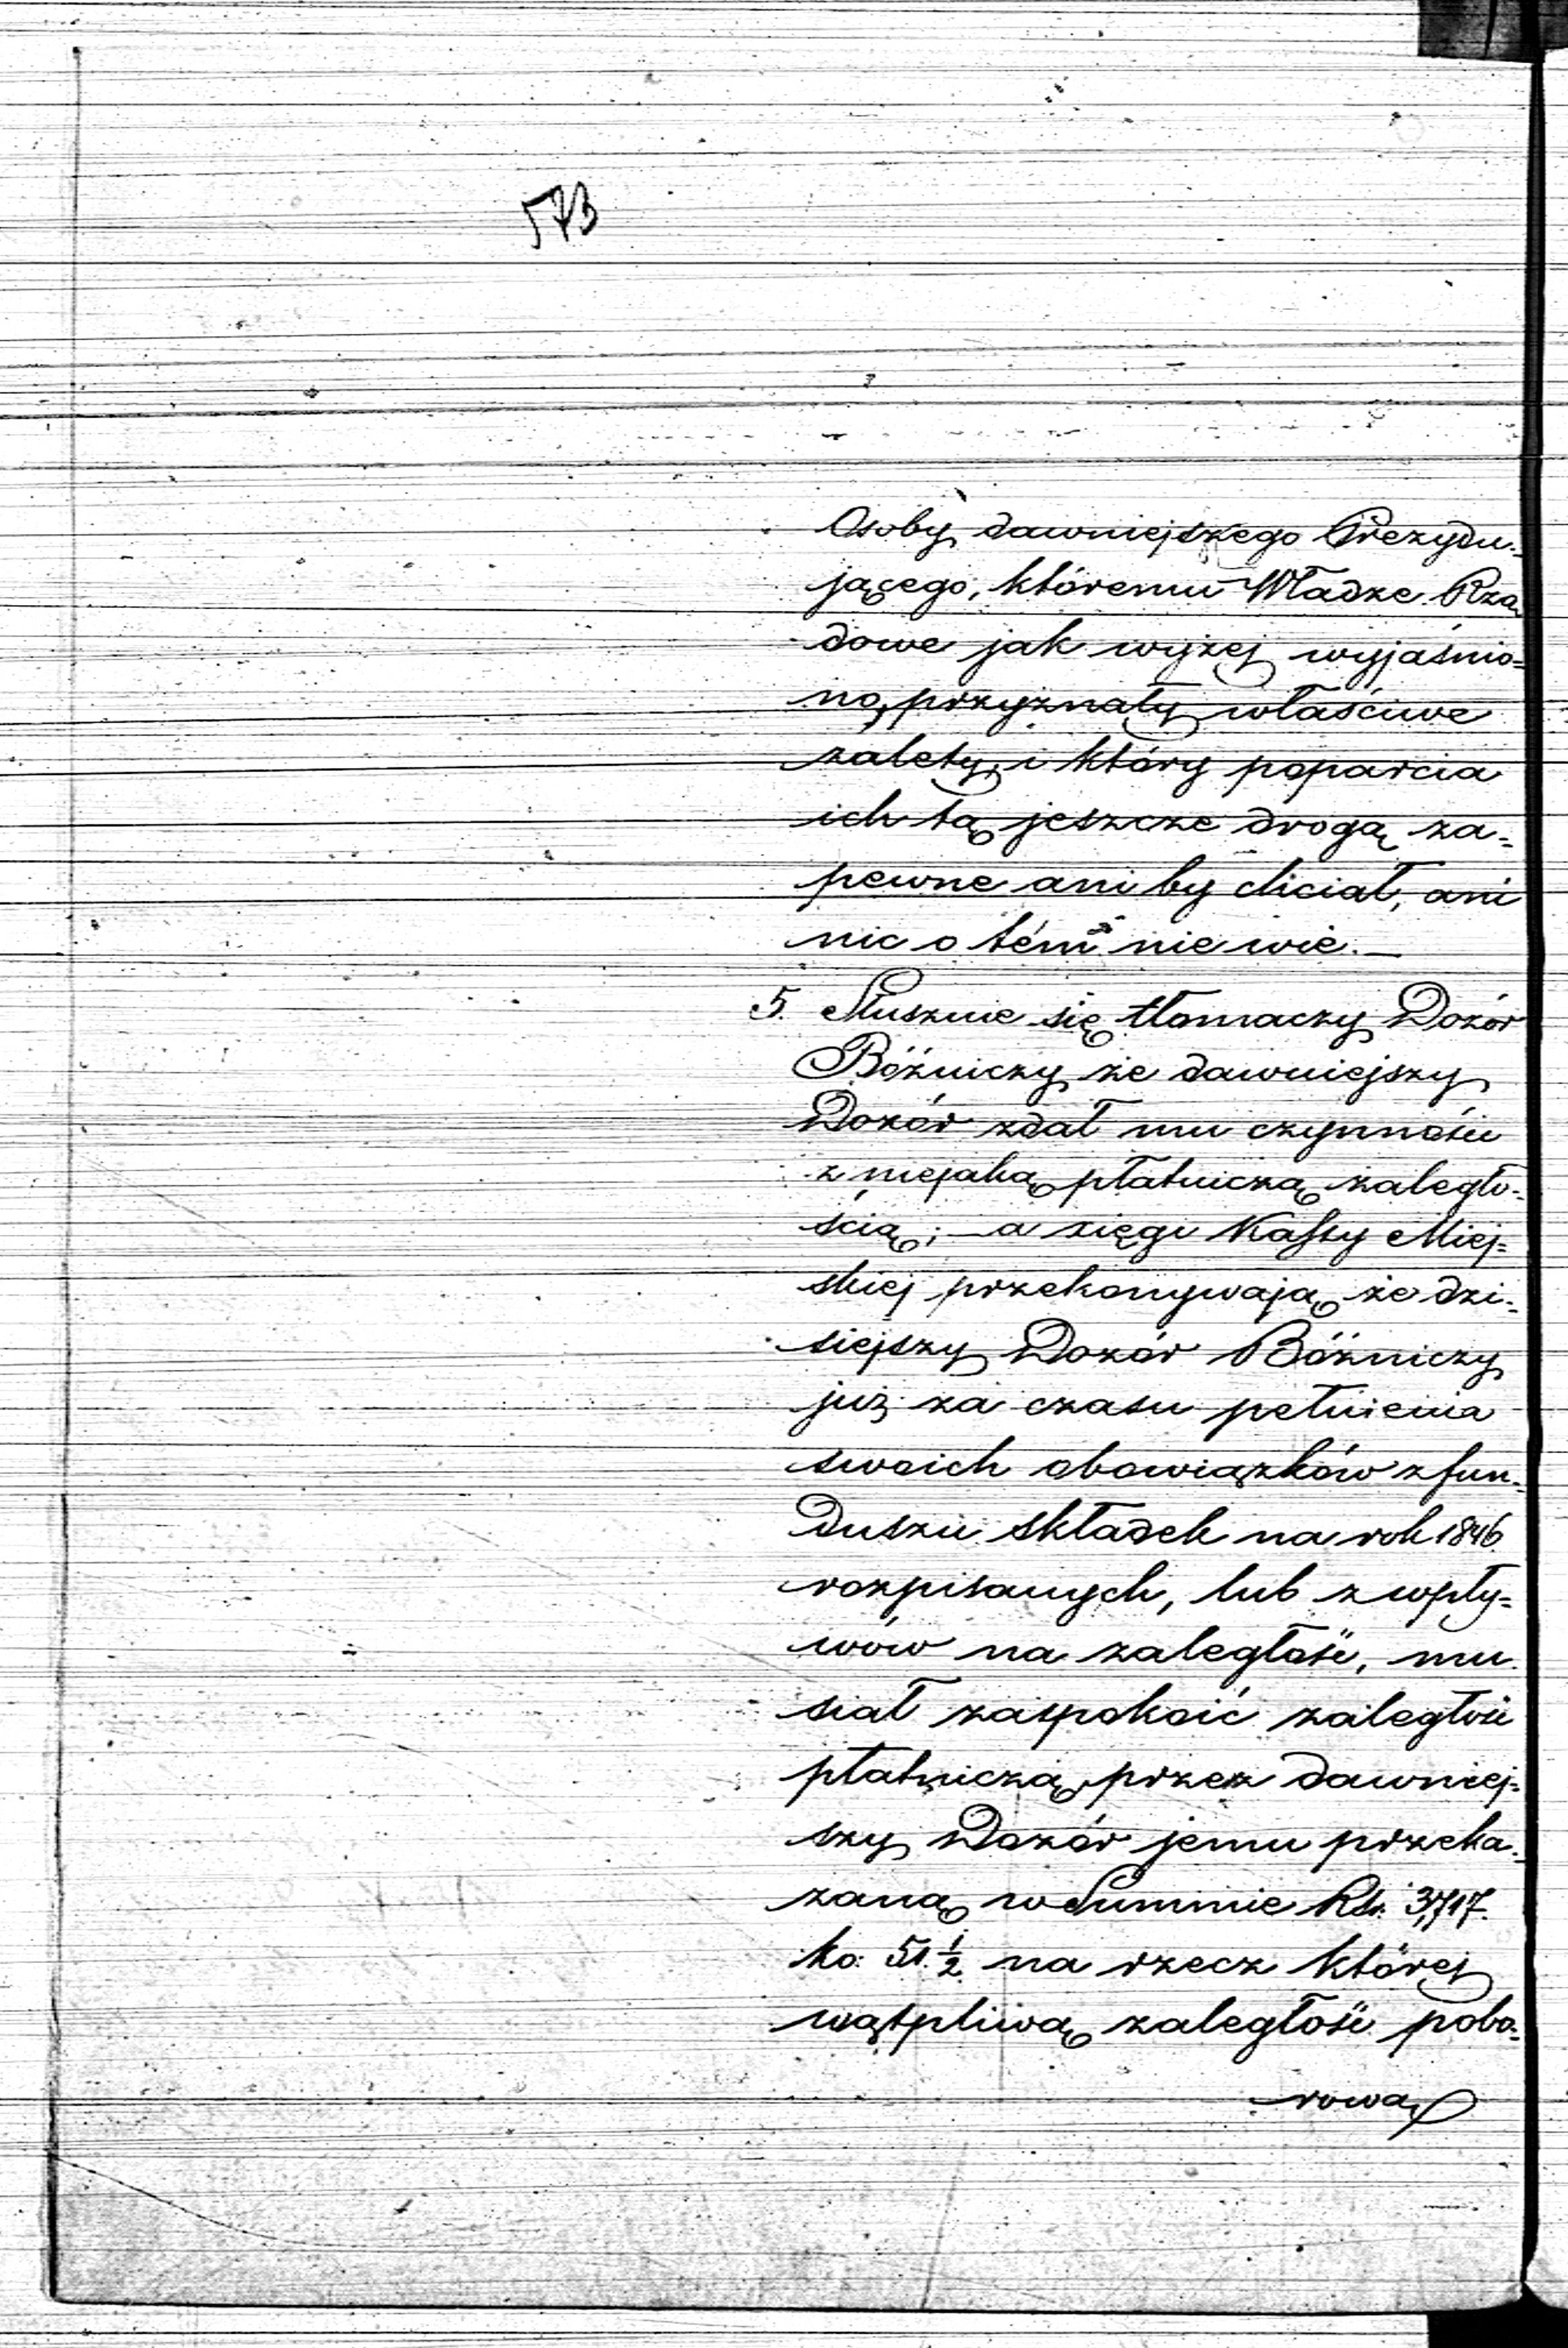 573
Osoby dawniejszego Prezydu-
jącego, któremu Władze Rzą
dowe jak wyżej wyjaśnio-
no, przyznały właściwe
zalety, i który poparcia
ich tą jeszcze drogą za-
pewne ani by chciał, ani
nic o tém nie wie.—
5. Słusznie się tłomaczy Dozór
Bóźniczy że dawniejszy
Dozór zdał mu czynności
z niejaką płatniczą zaległo-
ścią; — a xięgi Kassy Miej-
skiej przekonywają że dzi-
siejszy Dozór Bóźniczy
już za czasu pełnienia
swoich obowiązków z fun-
duszu składek na rok 1846
rozpisanych, lub z wpły-
wów na zaległość, mu
siał zaspokoić zaległość
płatniczą, przez dawniej-
szy Dozór jemu przeka-
zaną w Summie Rsr. 3,717.
ko: 51. 1/2 na rzecz której
wątpliwą zaległość pobo-
rową